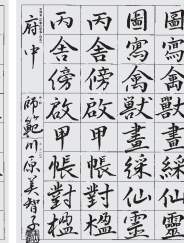 圖寫禽獸畫綵仙靈
丙舍傍啟甲帳對楹
丙舍傍啟甲帳對楹
府中 師範 川原美智子